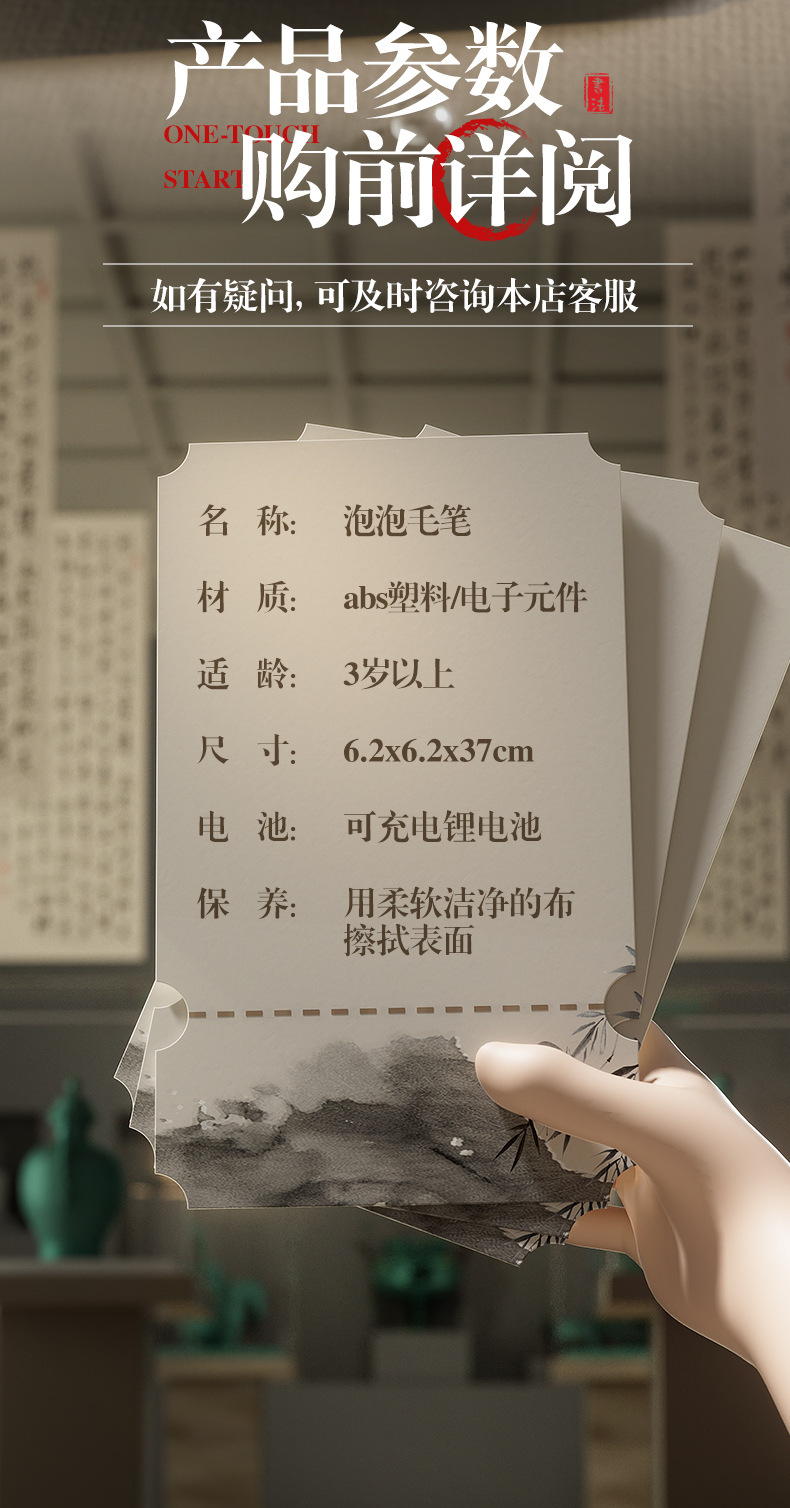 产品参数
書法
ONE-TOUCH
START
购前详阅
如有疑问,可及时咨询本店客服
名 称: 泡泡毛笔
材 质: abs塑料/电子元件
适 龄: 3岁以上
尺 寸: 6.2x6.2x37cm
电 池: 可充电锂电池
保 养: 用柔软洁净的布
擦拭表面